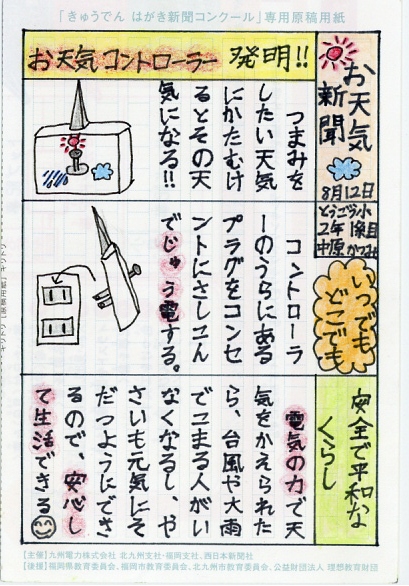 「きゅうでん はがき新聞コンクール」専用原稿用紙
お天気
新聞
8月12日
とうごう小
2年1組8番
中原 かつみ
お天気コントローラー 発明!!
つまみを
したい天気
にかたむけ
るとその天
気になる!!
いつでも
どこでも
コントローラ
ーのうらにある
プラグをコンセ
ントにさしこん
でじゅう電する。
安全で平和な
くらし
電気の力で天
気をかえられた
ら、台風や大雨
でこまる人がい
なくなるし、や
さいも元気にそ
だつようにでき
るので、安心し
て生活できる
【主催】九州電力株式会社 北九州支社・福岡支社、西日本新聞社
【後援】福岡県教育委員会、福岡市教育委員会、北九州市教育委員会、公益財団法人 理想教育財団